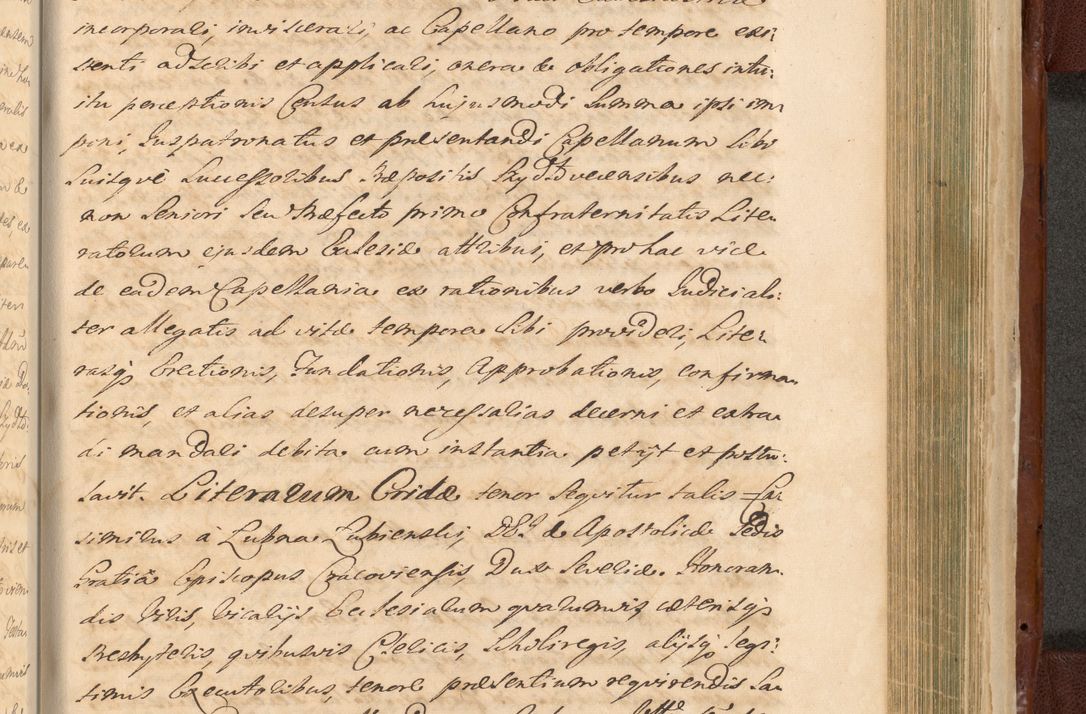 incorporari, inviscerari, ac Capellano pro tempore exi:
stenti adscribi et applicari, onera & obligationes intu:
itu perceptionis Census ab hujusmodi Summa ipsi im
poni, Juspatronatus et præsentandi Capellanum Sibi
Suisque Successoribus Præpositis nec:
non Seniori Seu Præfecto primo Confraternitatis Lite:
ratorum ejusdem Ecclesiæ attribui, et pro hac vice
de eadem Capellania ex rationibus verbo Judiciali:
ter allegatis ad vitæ tempora Sibi provideri, Lite:
rasq3 Erectionis, Fundationis, Approbationis, confirma
tionis, et alias desuper necessarias decerni et extra
di mandari debita cum instantia petijt et postu:
lavit. Literarum Cridæ tenor Seqvitur talis = Ca:
simirus à Lubna Lubienski, DEI & Apostolicæ Sedis
Gratia Episcopus Cracoviensis, Dux Severiæ. Honoran
dis Viris, Vicarijs Ecclesiarum qvarumvis, cæterisq3
Presbyteris, qvibusvis Clericis, Scholiregis, alijsq3 legi:
timis Executoribus, tenore præsentium reqvirendis Sa: